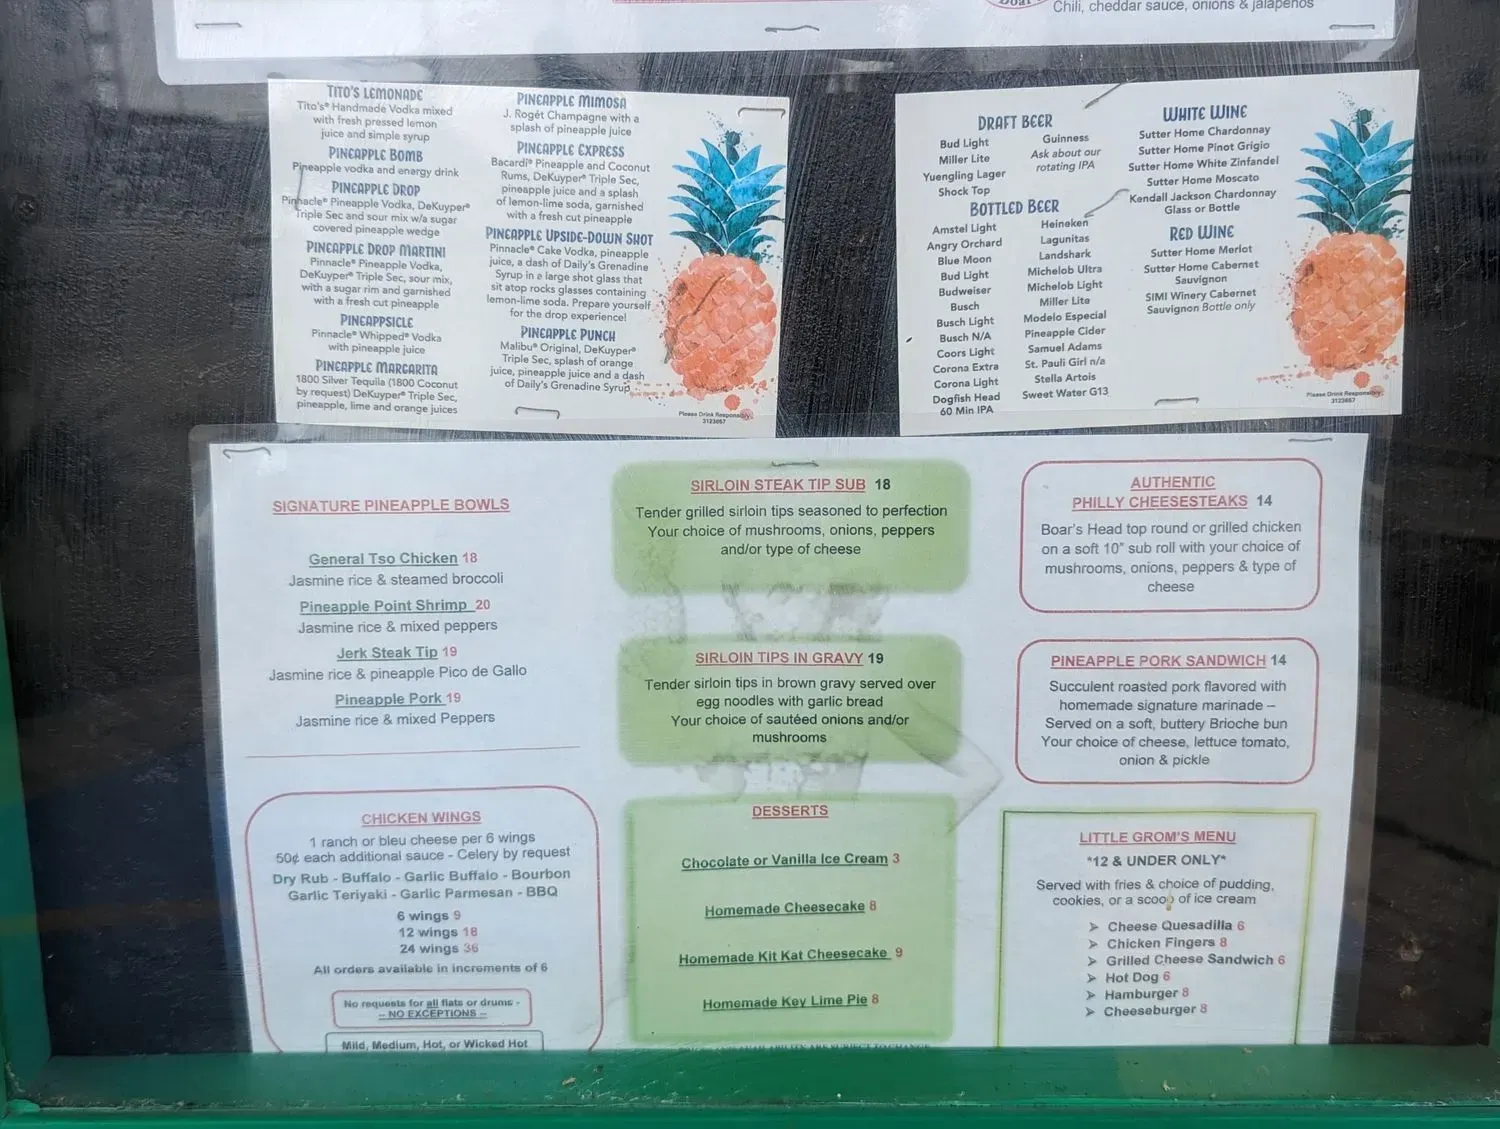 Boar's
Chili, cheddar sauce, onions & jalapeños
TITO'S LEMONADE
Tito's® Handmade Vodka mixed
with fresh pressed lemon
juice and simple syrup
PINEAPPLE BOMB
Pineapple vodka and energy drink
PINEAPPLE DROP
Pinnacle® Pineapple Vodka, DeKuyper®
Triple Sec and sour mix w/a sugar
covered pineapple wedge
PINEAPPLE DROP MARTINI
Pinnacle® Pineapple Vodka,
DeKuyper® Triple Sec, sour mix,
with a sugar rim and garnished
with a fresh cut pineapple
PINEAPPSICLE
Pinnacle® Whipped® Vodka
with pineapple juice
PINEAPPLE MARGARITA
1800 Silver Tequila (1800 Coconut
by request) DeKuyper® Triple Sec,
pineapple, lime and orange juices
PINEAPPLE MIMOSA
J. Rogét Champagne with a
splash of pineapple juice
PINEAPPLE EXPRESS
Bacardi® Pineapple and Coconut
Rums, DeKuyper® Triple Sec,
pineapple juice and a splash
of lemon-lime soda, garnished
with a fresh cut pineapple
PINEAPPLE UPSIDE-DOWN SHOT
Pinnacle® Cake Vodka, pineapple
juice, a dash of Daily's Grenadine
Syrup in a large shot glass that
sit atop rocks glasses containing
lemon-lime soda. Prepare yourself
for the drop experience!
PINEAPPLE PUNCH
Malibu® Original, DeKuyper®
Triple Sec, splash of orange
juice, pineapple juice and a dash
of Daily's Grenadine Syrup
Please Drink Responsibly.
3123657
DRAFT BEER
Bud Light
Miller Lite
Yuengling Lager
Shock Top
Guinness
Ask about our
rotating IPA
BOTTLED BEER
Amstel Light
Angry Orchard
Blue Moon
Bud Light
Budweiser
Busch
Busch Light
Busch N/A
Coors Light
Corona Extra
Corona Light
Dogfish Head
60 Min IPA
Heineken
Lagunitas
Landshark
Michelob Ultra
Michelob Light
Miller Lite
Modelo Especial
Pineapple Cider
Samuel Adams
St. Pauli Girl n/a
Stella Artois
Sweet Water G13
WHITE WINE
Sutter Home Chardonnay
Sutter Home Pinot Grigio
Sutter Home White Zinfandel
Sutter Home Moscato
Kendall Jackson Chardonnay
Glass or Bottle
RED WINE
Sutter Home Merlot
Sutter Home Cabernet
Sauvignon
SIMI Winery Cabernet
Sauvignon Bottle only
Please Drink Responsibly.
3123657
SIGNATURE PINEAPPLE BOWLS
General Tso Chicken 18
Jasmine rice & steamed broccoli
Pineapple Point Shrimp 20
Jasmine rice & mixed peppers
Jerk Steak Tip 19
Jasmine rice & pineapple Pico de Gallo
Pineapple Pork 19
Jasmine rice & mixed Peppers
CHICKEN WINGS
1 ranch or bleu cheese per 6 wings
50¢ each additional sauce - Celery by request
Dry Rub - Buffalo - Garlic Buffalo - Bourbon
Garlic Teriyaki - Garlic Parmesan - BBQ
6 wings 9
12 wings 18
24 wings 36
All orders available in increments of 6
No requests for all flats or drums -
– NO EXCEPTIONS –
Mild, Medium, Hot, or Wicked Hot
SIRLOIN STEAK TIP SUB 18
Tender grilled sirloin tips seasoned to perfection
Your choice of mushrooms, onions, peppers
and/or type of cheese
SIRLOIN TIPS IN GRAVY 19
Tender sirloin tips in brown gravy served over
egg noodles with garlic bread
Your choice of sautéed onions and/or
mushrooms
DESSERTS
Chocolate or Vanilla Ice Cream 3
Homemade Cheesecake 8
Homemade Kit Kat Cheesecake 9
Homemade Key Lime Pie 8
AVAILABILITY ARE SUBJECT TO CHANGE
AUTHENTIC
PHILLY CHEESESTEAKS 14
Boar's Head top round or grilled chicken
on a soft 10" sub roll with your choice of
mushrooms, onions, peppers & type of
cheese
PINEAPPLE PORK SANDWICH 14
Succulent roasted pork flavored with
homemade signature marinade –
Served on a soft, buttery Brioche bun
Your choice of cheese, lettuce tomato,
onion & pickle
LITTLE GROM'S MENU
*12 & UNDER ONLY*
Served with fries & choice of pudding,
cookies, or a scoop of ice cream
➤ Cheese Quesadilla 6
➤ Chicken Fingers 8
➤ Grilled Cheese Sandwich 6
➤ Hot Dog 6
➤ Hamburger 8
➤ Cheeseburger 8